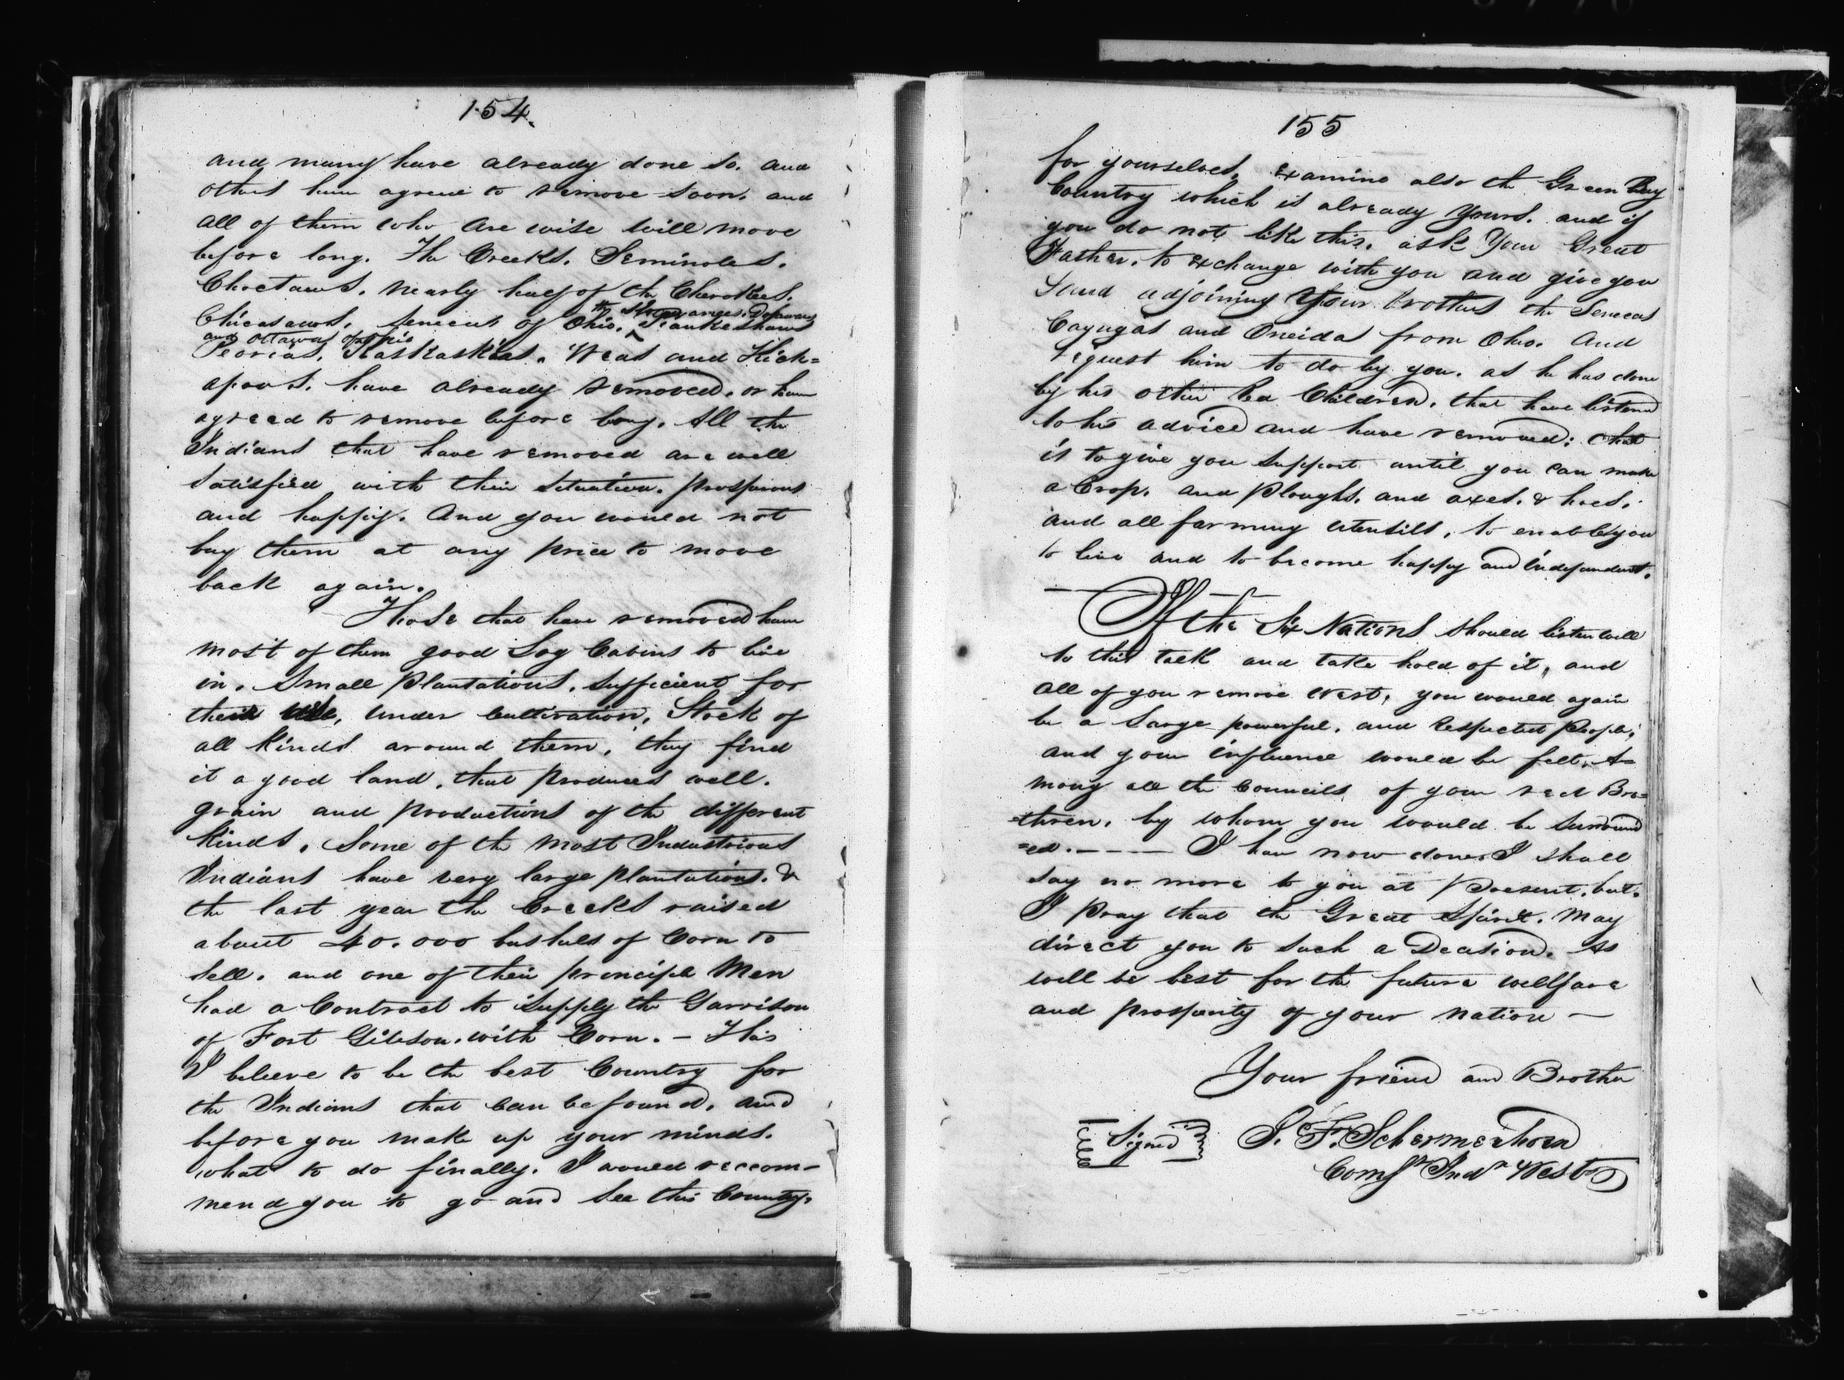 154.
and many have already done so. and
others have agreed to remove soon. and
all of them who are wise will move
before long. The Creeks. Seminoles.
Choctaws. nearly half of the Cherokees.
the Shawanees. Delawares
Chicasaws. Senecas of Ohio. ^ Piankeshaws
and Ottawas of Ohio
Peorias. Kaskaskias. Weas and Kick=
apoos. have already removed. or have
agreed to remove before long. All the
Indians that have removed are well
satisfied with their situation. prosperous
and happy. And you would not
buy them at any price to move
back again.
Those that have removed have
most of them good Log Cabins to live
in. Small Plantations. sufficient for
their use, under cultivation. Stock of
all kinds around them. they find
it a good land. that produces well.
grain and productions of the different
kinds. Some of the most Industrious
Indians have very large plantations. &
the last year the Creeks raised
about 40.000 bushels of Corn to
sell. and one of their principle Men
had a Contract to supply the Garrison
of Fort Gibson. with Corn. — This
I believe to be the best Country for
the Indians that can be found. and
before you make up your minds.
what to do finally. I would recom-
mend you to go and see this Country.
155
for yourselves. examine also the Green Bay
Country which is already yours. and if
you do not like this. ask Your Great
Father. to exchange with you and give you
Land adjoining Your brothers the Senecas
Cayugas and Oneidas from Ohio. And
request him to do by you. as he has done
by his other Red Children. that have listened
to his advice and have removed: that
is to give you support until you can make
a Crop. and Ploughs. and axes. & hoes.
and all farming utensils. to enable you
to live and to become happy and independent.
— If the Six Nations should listen well
to this talk and take hold of it, and
all of you remove West, you would again
be a large powerful. and respected People;
and your influence would be felt. A=
mong all the Councils of your red Bre=
=thren. by whom you would be surround
=ed. — — — I have now done. I shall
say no more to you at present. but.
I pray that the Great Spirit. may
direct you to such a Decision. As
will be best for the future wellfare
and prosperity of your nation —
Your friend and Brother
Signed J. F. Schermerhorn
Comsr Indn West